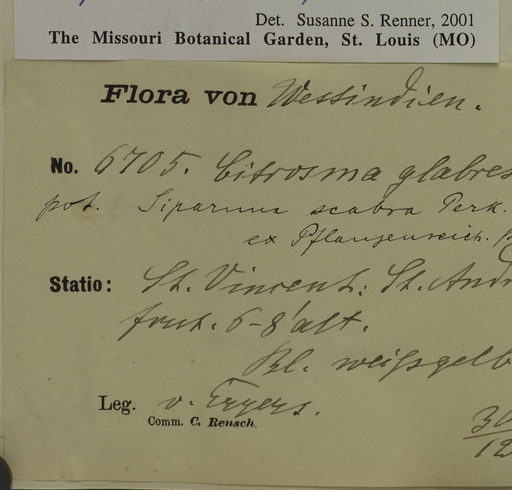 Det. Susanne S. Renner, 2001
The Missouri Botanical Garden, St. Louis (MO)
Flora von Westindien.
No. 6705. Citrosma glabres
pot. Siparuna scabra Perk.
ex Pflanzenreich.
Statio: St. Vincent: St. Andr
frut. 6-8' alt.
Bl. weissgelb
Leg. v. Eggers.
Comm. C. Rensch.
30
12